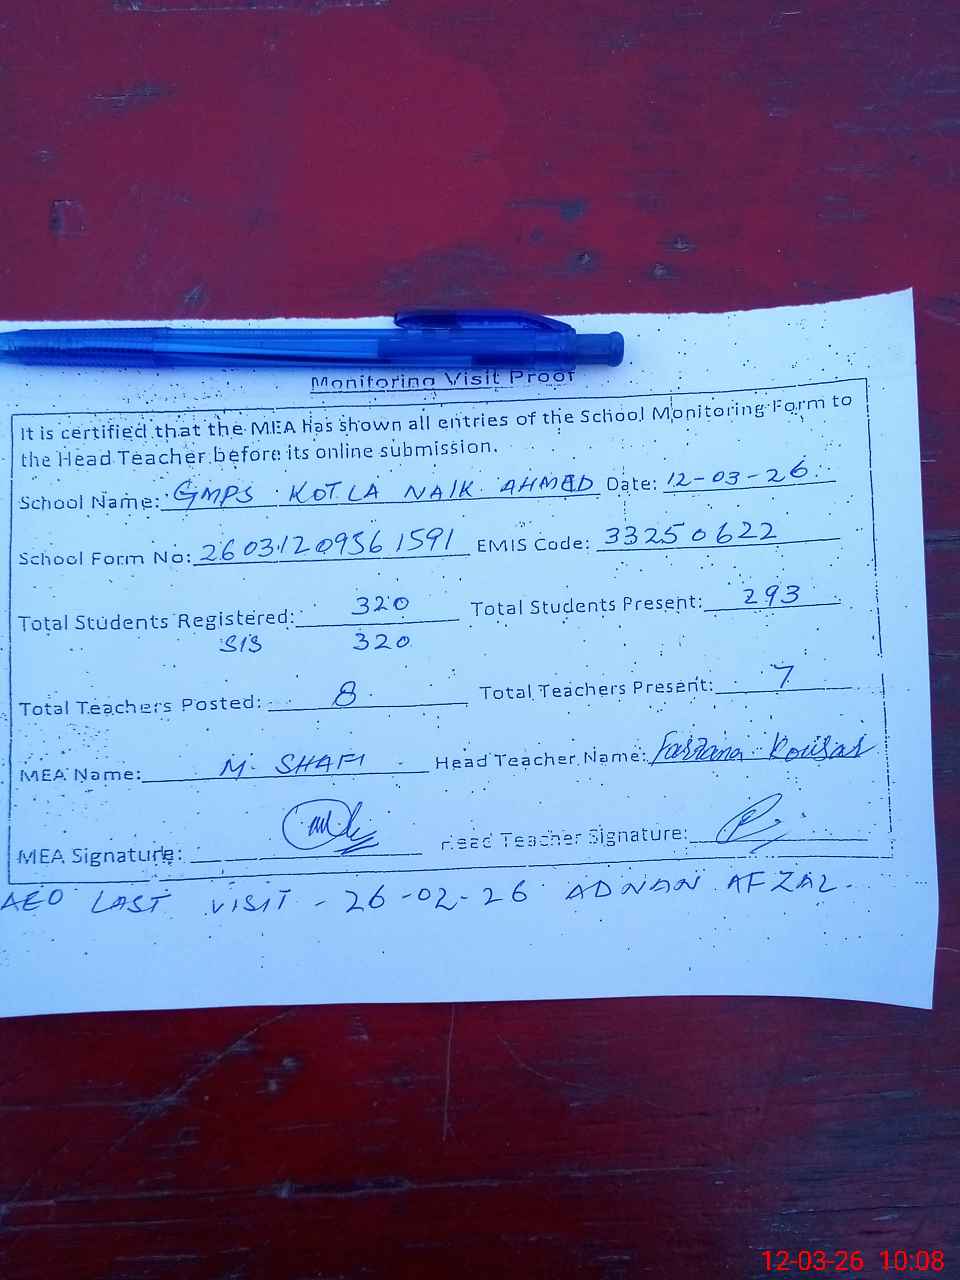 Monitoring Visit Proof
It is certified that the MEA has shown all entries of the School Monitoring Form to
the Head Teacher before its online submission.
School Name: GMPS KOTLA NAIK AHMED Date: 12-03-26
School Form No: 26031209561591 EMIS Code: 33250622
Total Students Registered: 320 Total Students Present: 293
SIS 320
Total Teachers Posted: 8 Total Teachers Present: 7
MEA Name: M. SHAFI Head Teacher Name: Farzana Kousar
MEA Signature: Head Teacher Signature:
AEO LAST VISIT - 26-02-26 ADNAN AFZAL.
12-03-26 10:08